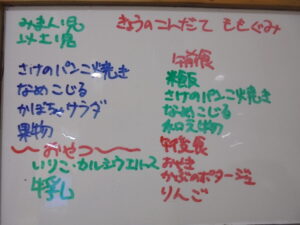 きょうのこんだて ももぐみ
みまん児
以上児
さけのパンこ焼き
なめこじる
かぼちゃサラダ
果物
～おやつ～
いりこ・カルシウエハース
牛乳
午前食
米飯
さけのパンこ焼き
なめこじる
和え物
午後食
おやき
かぶのポタージュ
りんご